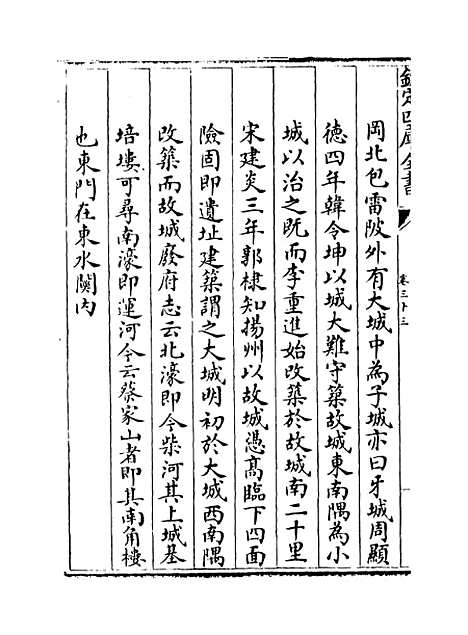 欽定四庫全書
卷三十三
岡北包雷陂外有大城中為子城亦曰牙城周顯
德四年韓令坤以城大難守築故城東南隅為小
城以治之既而李重進始改築於故城南二十里
宋建炎三年郭棣知揚州以故城憑高臨下四面
險固即遺址建築謂之大城明初於大城西南隅
改築而故城廢府志云北濠即今柴河其上城基
培塿可尋南濠即運河今云蔡家山者即其南角樓
也東門在東水關内